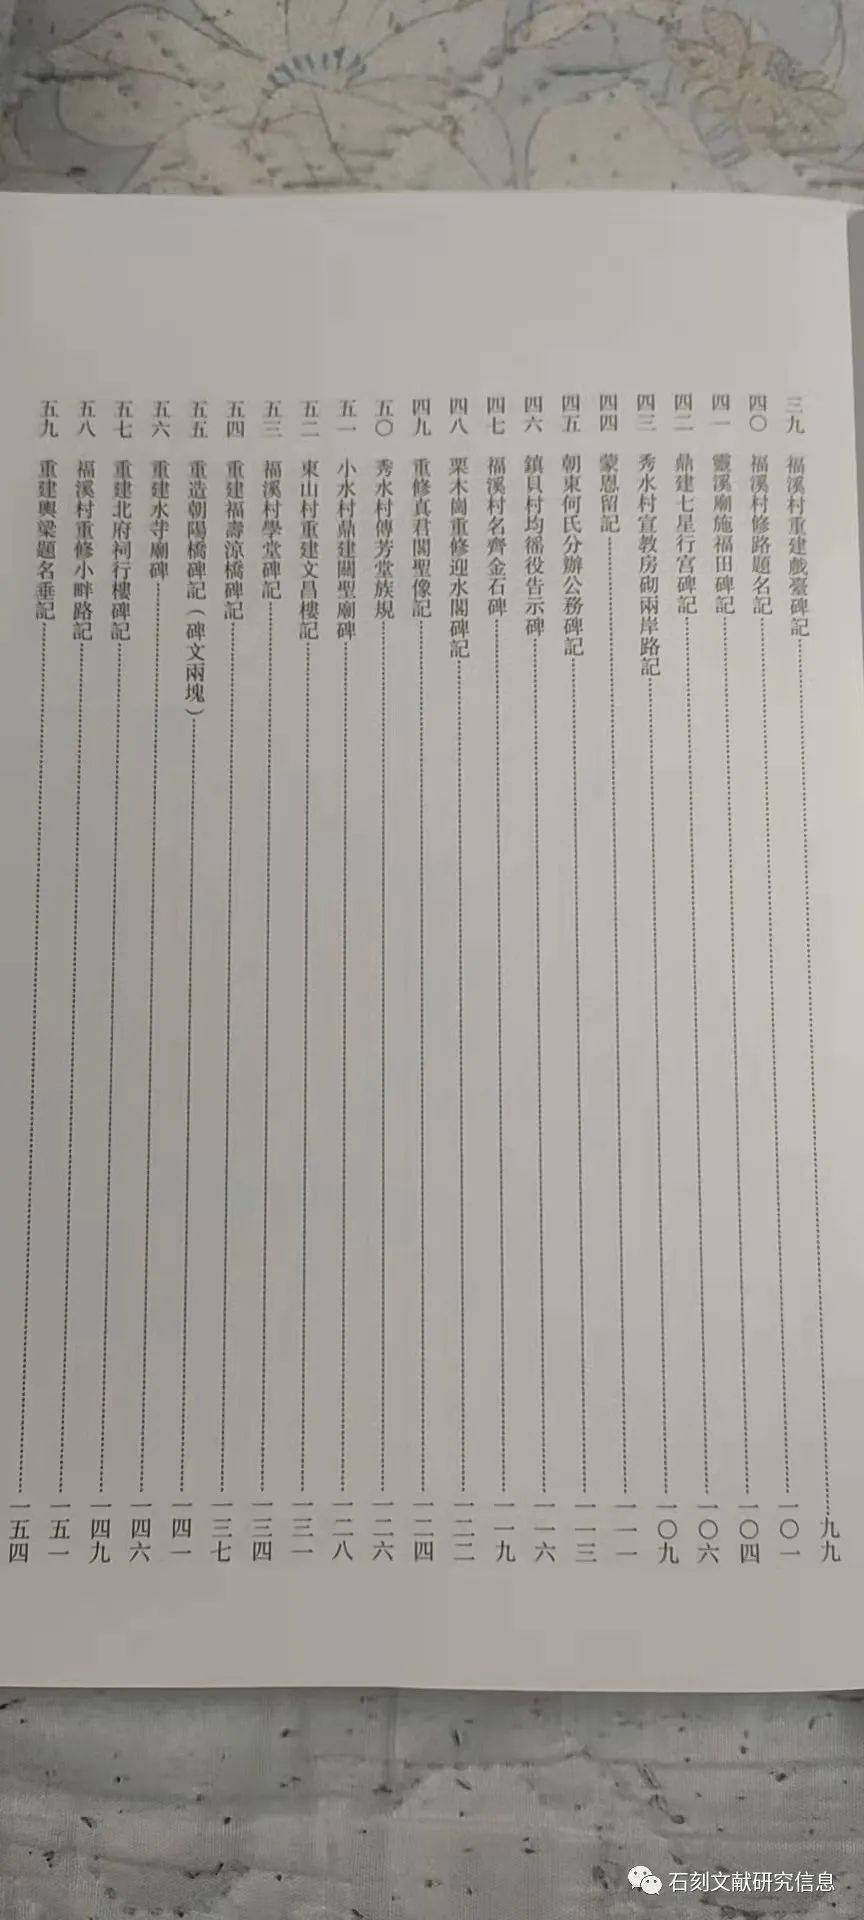 三九 福溪村重建戲臺碑記 九九
四〇 福溪村修路題名記 一〇一
四一 靈溪廟施福田碑記 一〇四
四二 鼎建七星行宮碑記 一〇六
四三 秀水村宣教房砌兩岸路記 一〇九
四四 蒙恩留記 一一一
四五 朝東何氏分辦公務碑記 一一三
四六 鎮貝村均徭役告示碑 一一六
四七 福溪村名齊金石碑 一一九
四八 栗木崗重修迎水閣碑記 一二二
四九 重修真君閣聖像記 一二四
五〇 秀水村傳芳堂族規 一二六
五一 小水村鼎建關聖廟碑 一二八
五二 東山村重建文昌樓記 一三一
五三 福溪村學堂碑記 一三四
五四 重建福壽涼橋碑記 一三七
五五 重造朝陽橋碑記（碑文兩塊） 一四一
五六 重建水寺廟碑 一四六
五七 重建北府祠行樓碑記 一四九
五八 福溪村重修小畔路記 一五一
五九 重建輿梁題名垂記 一五四
石刻文献研究信息